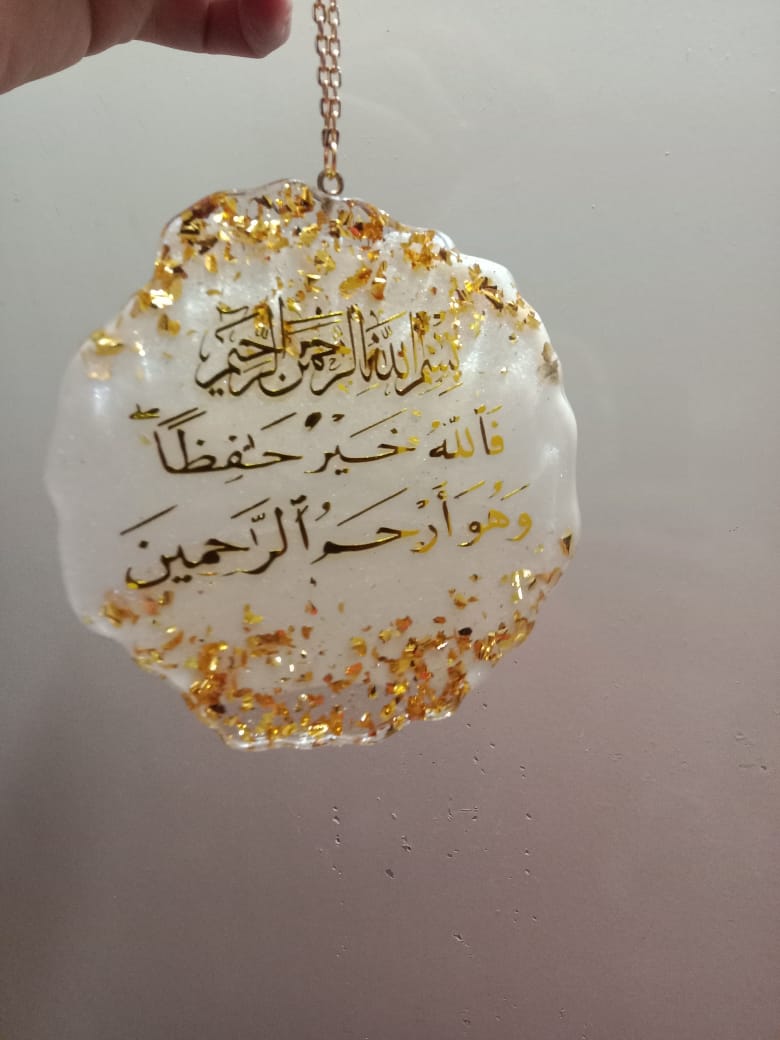 بِسْمِ اللَّهِ الرَّحْمَنِ الرَّحِيمِ
فَٱللَّهُ خَيْرٌ حَـٰفِظًاۖ
وَهُوَ أَرْحَمُ ٱلرَّٰحِمِينَ